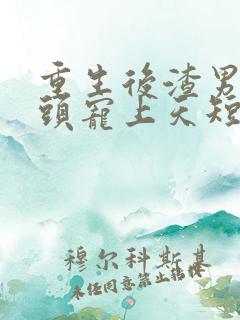 重生後渣男
頭寵上天短
穆尔科斯基
未任同意禁止转换